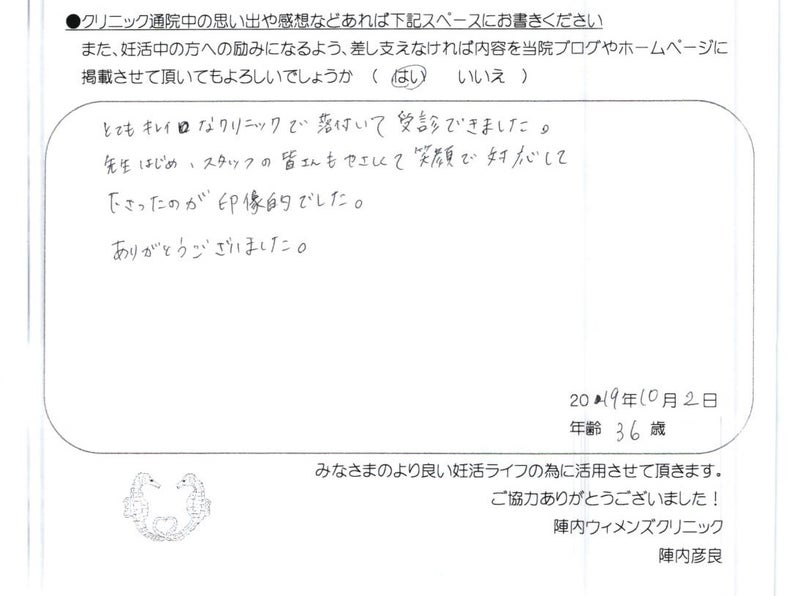 ●クリニック通院中の思い出や感想などあれば下記スペースにお書きください
また、妊活中の方への励みになるよう、差し支えなければ内容を当院ブログやホームページに
掲載させて頂いてもよろしいでしょうか （ はい いいえ ）
とてもキレイなクリニックで落付いて受診できました。
先生はじめ、スタッフの皆さんもやさしくて笑顔で対応して
下さったのが印像的でした。
ありがとうございました。
2019年10月2日
年齢 36 歳
みなさまのより良い妊活ライフの為に活用させて頂きます。
ご協力ありがとうございました！
陣内ウィメンズクリニック
陣内彦良